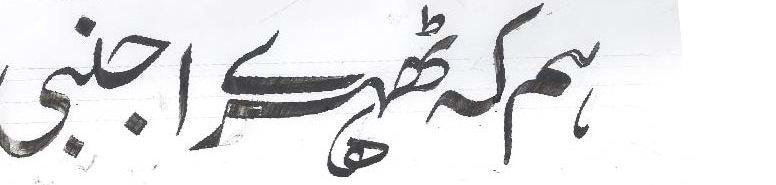 ہم کہ ٹھہرے اجنبی